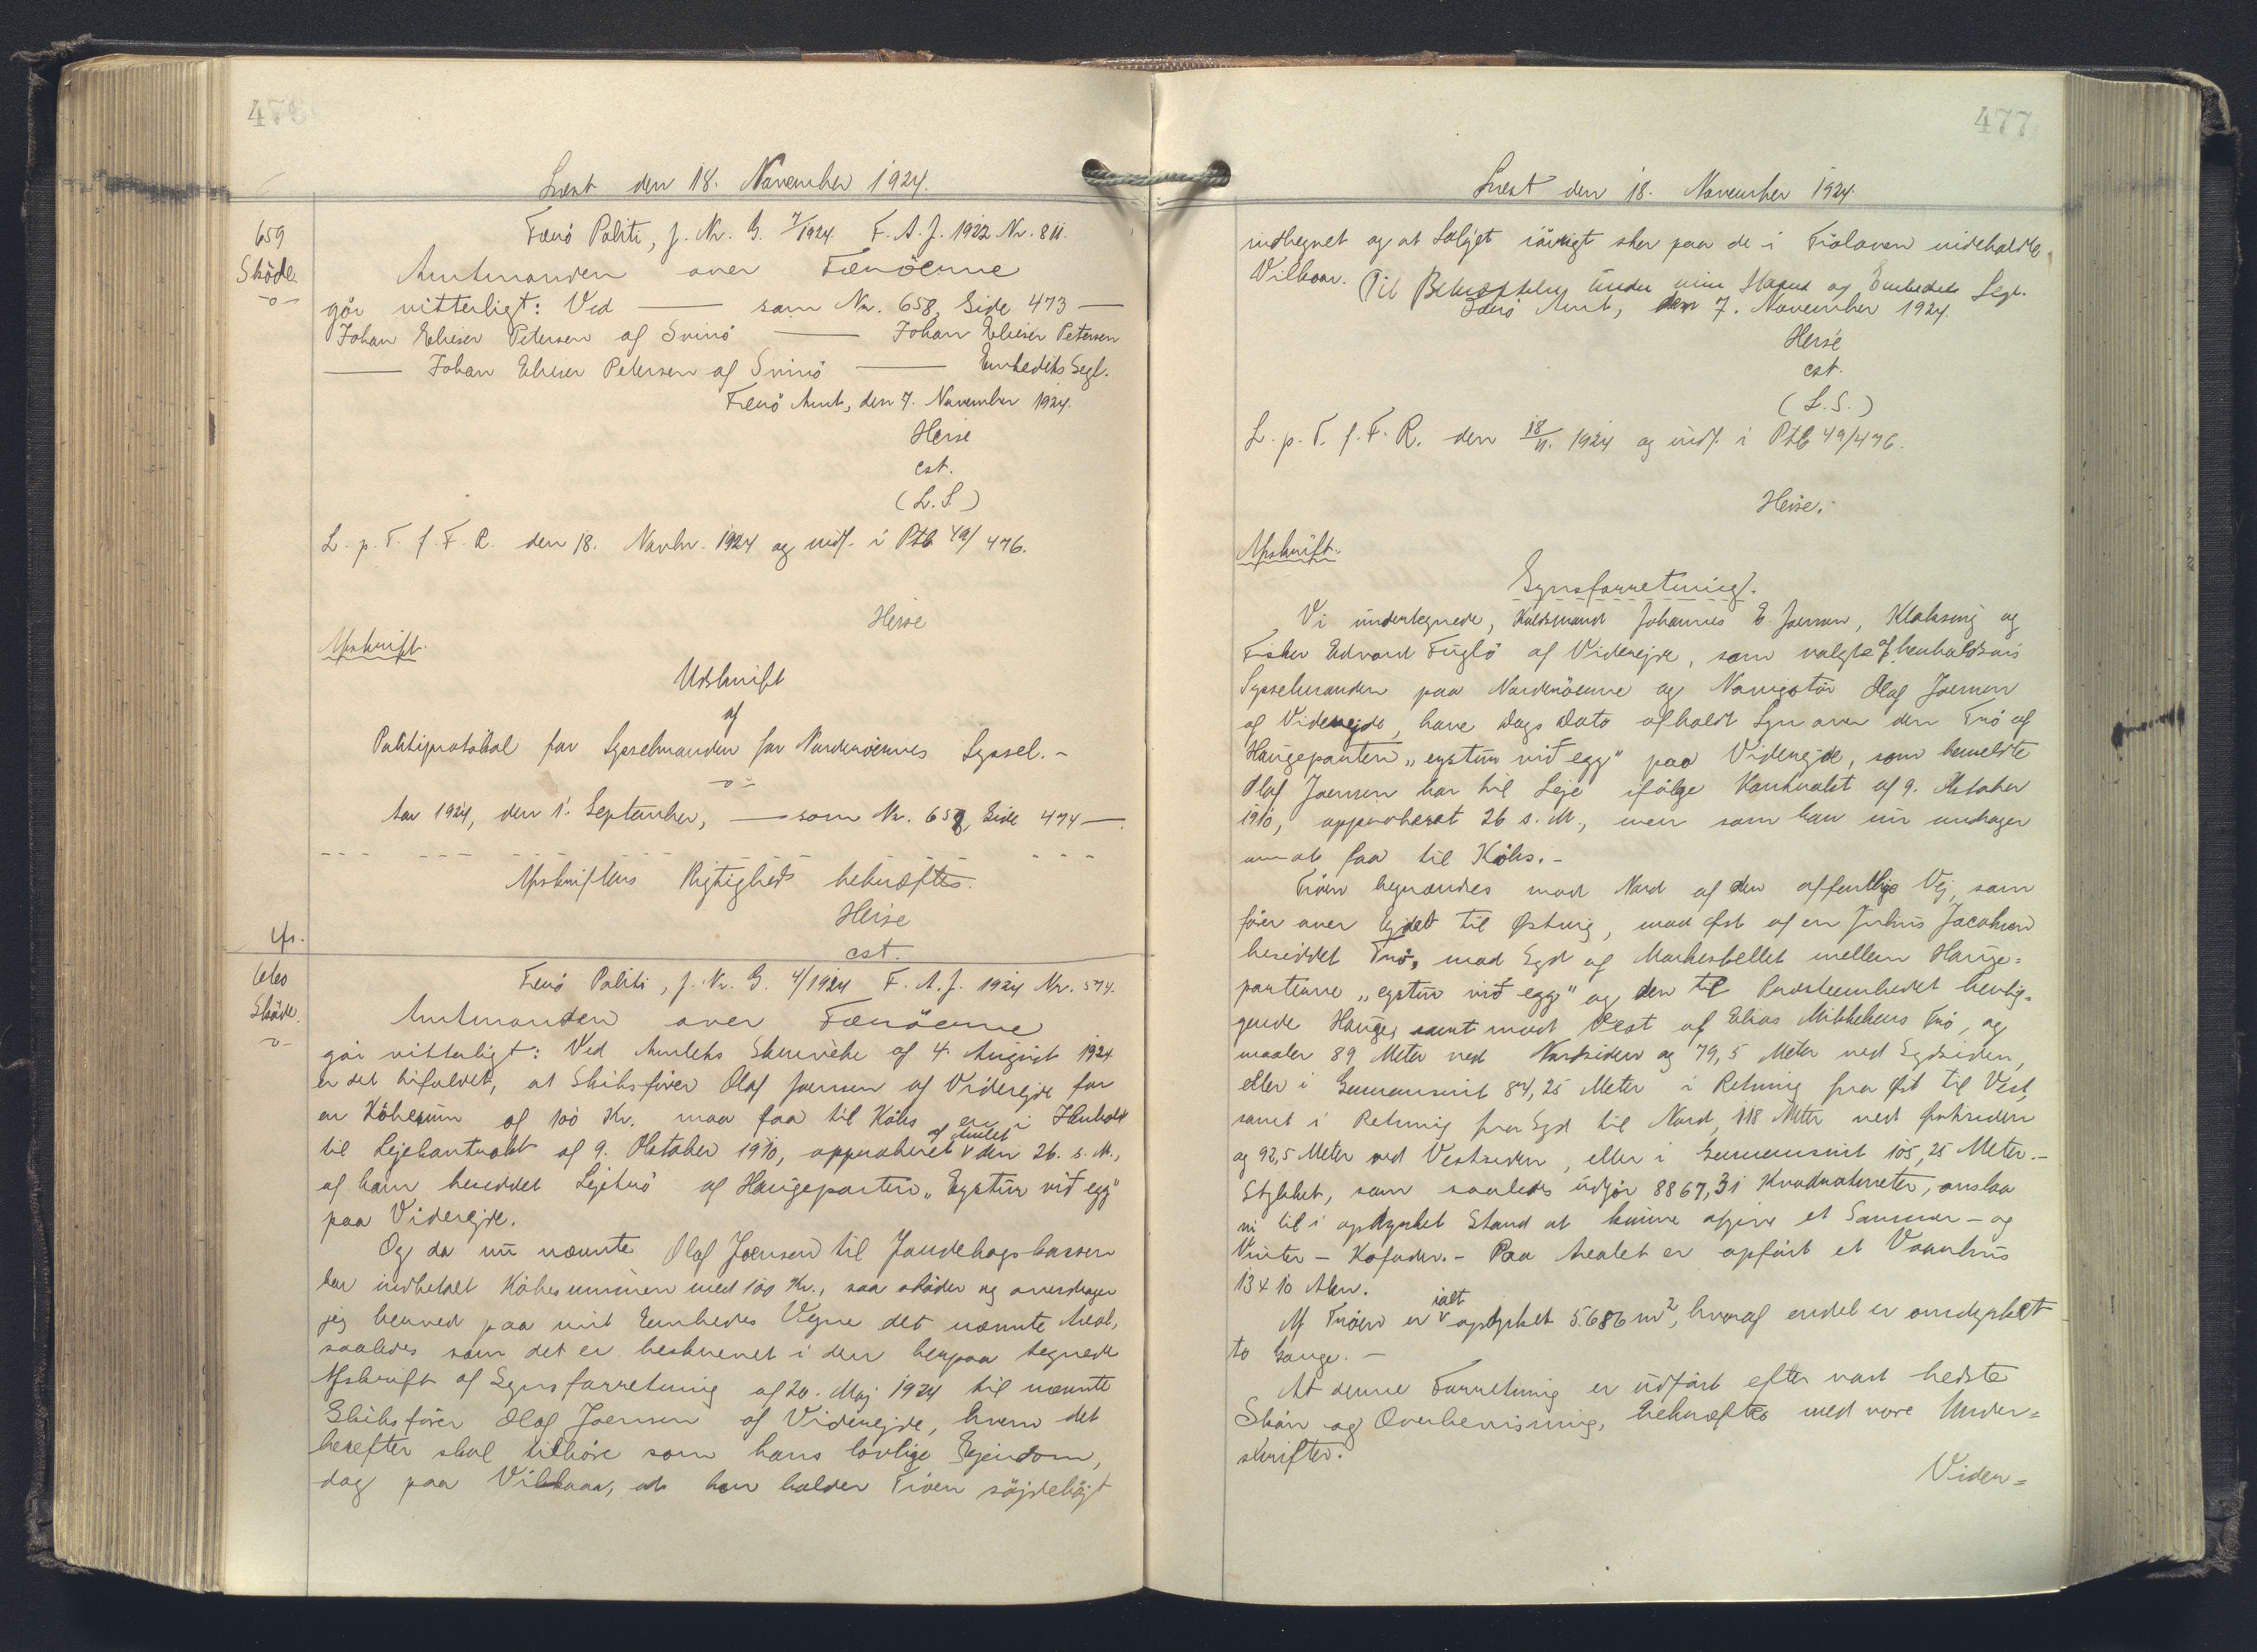 476
Læst den 18. November 1924.
659
Sköde
-o-
Færö Politi, J. Nr. G. 7/1924 F. A. J. 1922 Nr. 811.
Amtmanden over Færöerne
gör vitterligt: Ved — som Nr. 658, Side 473 —
Johan Elieser Petersen af Svinö — Johan Elieser Petersen
— Johan Elieser Petersen af Svinö — Embedets Segl.
Færö Amt, den 7. November 1924.
Heise
cst.
(L.S.)
L. p. T. f. F. R. den 18. Novbr. 1924 og indf. i PtB 49/476.
Heise
Afskrift.
Udskrift
af
Politiprotokol for Sysselmanden for Norderöernes Syssel.-
-o-
Aar 1924, den 1. September, — som Nr. 658, Side 474 —.
--- --- --- --- --- ---
Afskriftens Rigtighed bekræftes.
Heise
cst.
660
Sköde
-o-
Færö Politi, J. Nr. G. 4/1924 F. A. J. 1924 Nr. 574.
Amtmanden over Færöerne
gör vitterligt: Ved Amtets Skrivelse af 4. August 1924
er det bifaldet, at Skibsförer Olaf Joensen af Viderejde for
en Köbesum af 100 Kr. maa faa til Köbs en i Henhold
til Lejekontrakt af 9. Oktober 1910, approberet af Amtet den 26. s. M.,
af ham besiddet Lejetrö af Haugeparten "Eystur við egg"
paa Viderejde.
Og da nu nævnte Olaf Joensen til Jordebogskassen
har indbetalt Köbesummen med 100 Kr., saa sköder og overdrager
jeg herved paa mit Embedes Vegne det nævnte Areal,
saaledes som det er beskrevet i den herpaa tegnede
Afskrift af Synsforretning af 20. Maj 1924 til nævnte
Skibsförer Olaf Joensen af Viderejde, hvem det
herefter skal tilhöre som hans lovlige Ejendom,
dog paa Vilkaar, at han holder Tröen söjdehöjt
477
Læst den 18. November 1924
indhegnet og at Salget iövrigt sker paa de i Tröloven indeholdte
Vilkaar. Til Bekræftelse under min Haand og Embedets Segl.
Færö Amt, den 7. November 1924.
Heise
cst.
(L.S.)
L. p. T. f. F. R. den 18/11. 1924 og indf. i PtB 49/476.
Heise.
Afskrift.
Synsforretning.
Vi undertegnede, Johannes E. Joensen, Klaksvig og
Fisker Edvard Fuglö af Viderejde, som valgte af henholdsvis
Sysselmanden paa Norderöerne og Navigatör Olaf Joensen
af Viderejde, have Dags Dato afholdt Syn over den Trö af
Haugeparten "eystur við egg" paa Viderejde, som bemeldte
Olaf Joensen har til Leje ifölge Kontrakt af 9. Oktober
1910, approberet 26 s. M., men som han nu andrager
om at faa til Köbs.-
Tröen begrændses mod Nord af den offentlige Vej, som
förer over Ejdet til Østvig, mod Øst af en Julius Jacobsen
besiddet Trö, mod Syd af Markeskellet mellem Hauge=
partierne "eystur við egg" og den til Præsteembedet henlig=
gende Hauge, samt mod Vest af Elias Mikkelsens Trö, og
maaler 89 Meter ved Nordsiden og 79,5 Meter ved Sydsiden,
eller i Gennemsnit 84,25 Meter i Retning fra Øst til Vest,
samt i Retning fra Syd til Nord, 118 Meter ved Østsiden
og 92,5 Meter ved Vestsiden, eller i Gennemsnit 105,25 Meter.-
Stykket, som saaledes udgör 8867,31 Kvadratmeter, anslaa
vi til i opdyrket Stand at kunne afgive et Sommer- og
Vinter-Kofoder.- Paa Arealet er opfört et Vaanhus
13 x 10 Alen.
Af Tröen er ialt opdyrket 5.686 m², hvoraf endel er omdyrket
to Gange.-
At denne Forretning er udfört efter vort bedste
Skön og Overbevisning, bekræftes med vore Under=
skrifter.
Vider=